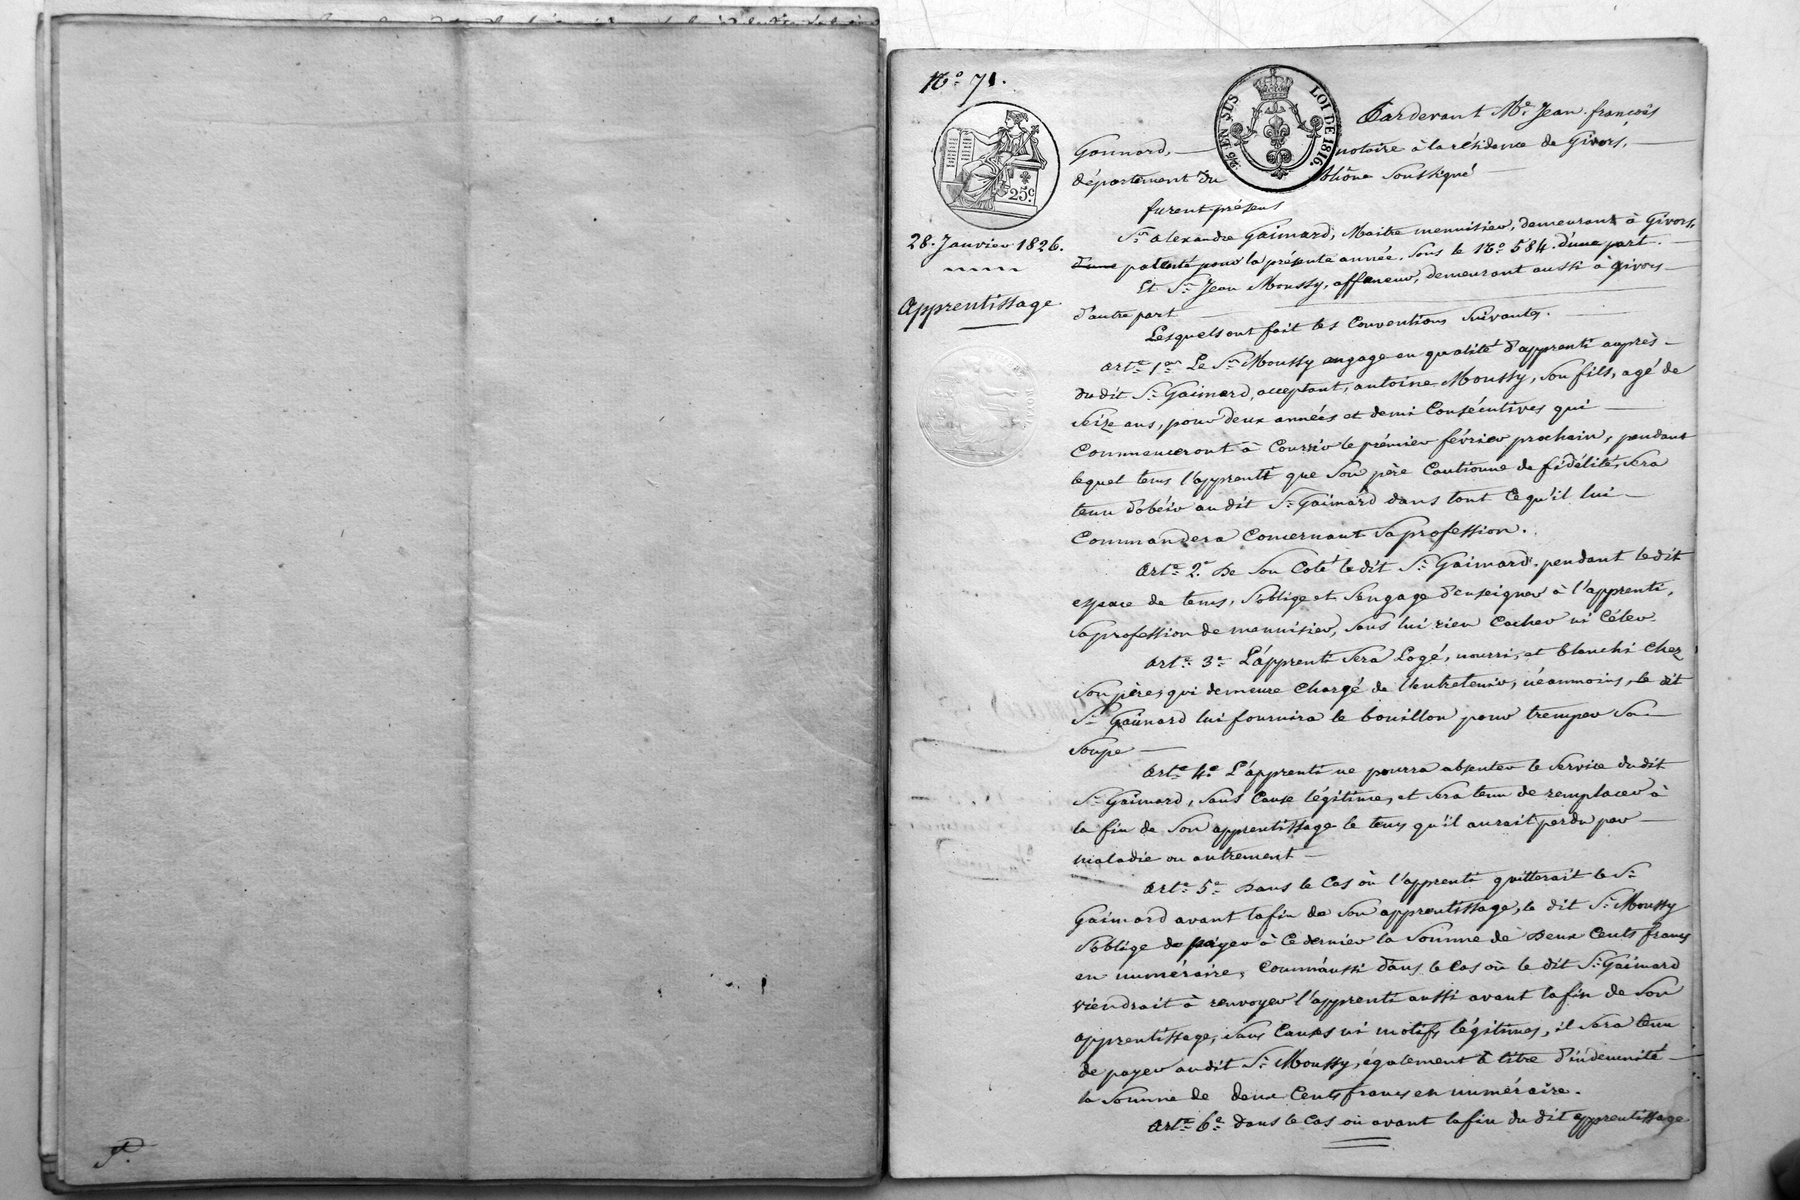 N.o 71.
25c.
28. Janvier 1826.
Apprentissage
EN SUS
LOI DE 1816.
Pardevant Me. Jean françois
Gonnard, notaire à la résidence de Givors,
département du Rhône Soussigné
furent présens
Sr. alexandre Gaimard, Maitre menuisier, demeurant à Givors,
patenté pour la présente année, sous le No. 584. d'une part.
Et Sr. Jean Moussy, affaneur, demeurant aussi à givors
d'autre part
Lesquels ont fait les Conventions Suivantes.
Arte. 1er. Le Sr. Moussy engage en qualité d'apprenti auprès
du dit Sr. Gaimard, acceptant, antoine Moussy, Son fils, agé de
Seize ans, pour deux années et demi Consécutives qui
Commenceront à Courrir le prémier février prochain, pendant
lequel tems l'apprenti que Son père Cautionne de fidélité, Sera
tenu d'obéir au dit Sr. Gaimard dans tout Ce qu'il lui
Commandera Concernant Sa profession.
Arte. 2e. De Son Coté le dit Sr. Gaimard, pendant le dit
espace de tems, S'oblige et S'engage d'enseigner à l'apprenti,
Sa profession de menuisier, Sans lui rien Cacher ni Céler
Arte. 3e. L'apprenti Sera Logé, nourri, et blanchi Chez
Son père, qui demeure Chargé de l'entretenir, néanmoins, le dit
Sr. Gaimard lui fournira le bouillon pour tremper Sa
Soupe
Arte. 4e. L'apprenti ne pourra absenter le Service du dit
Sr. Gaimard, Sans Cause légitime, et Sera tenu de remplacer à
la fin de Son apprentissage le tems qu'il aurait perdu par
maladie ou autrement
Arte. 5e. Dans le Cas où l'apprenti quitterait le Sr.
Gaimard avant la fin de Son apprentissage, le dit Sr. Moussy
S'oblige de payer à Ce dernier la Somme de Deux Cents francs
en numéraire, Comm'aussi dans le Cas où le dit Sr. Gaimard
viendrait à renvoyer l'apprenti aussi avant la fin de Son
apprentissage, Sans Causes ni motifs légitimes, il Sera tenu
de payer au dit Sr. Moussy, également à titre d'indemnité
la Somme de deux Cents francs en numéraire.
Arte. 6e. Dans le Cas où avant la fin du dit apprentissage